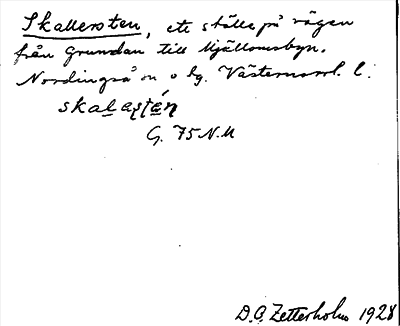 Skallersten, ett ställe på vägen
från Grundan till Mjällomsbyn.
Nordingrå sn o hg. Västernorrl. l.
skalaʂtén
G. 75 N.M
D.O. Zetterholm 1928